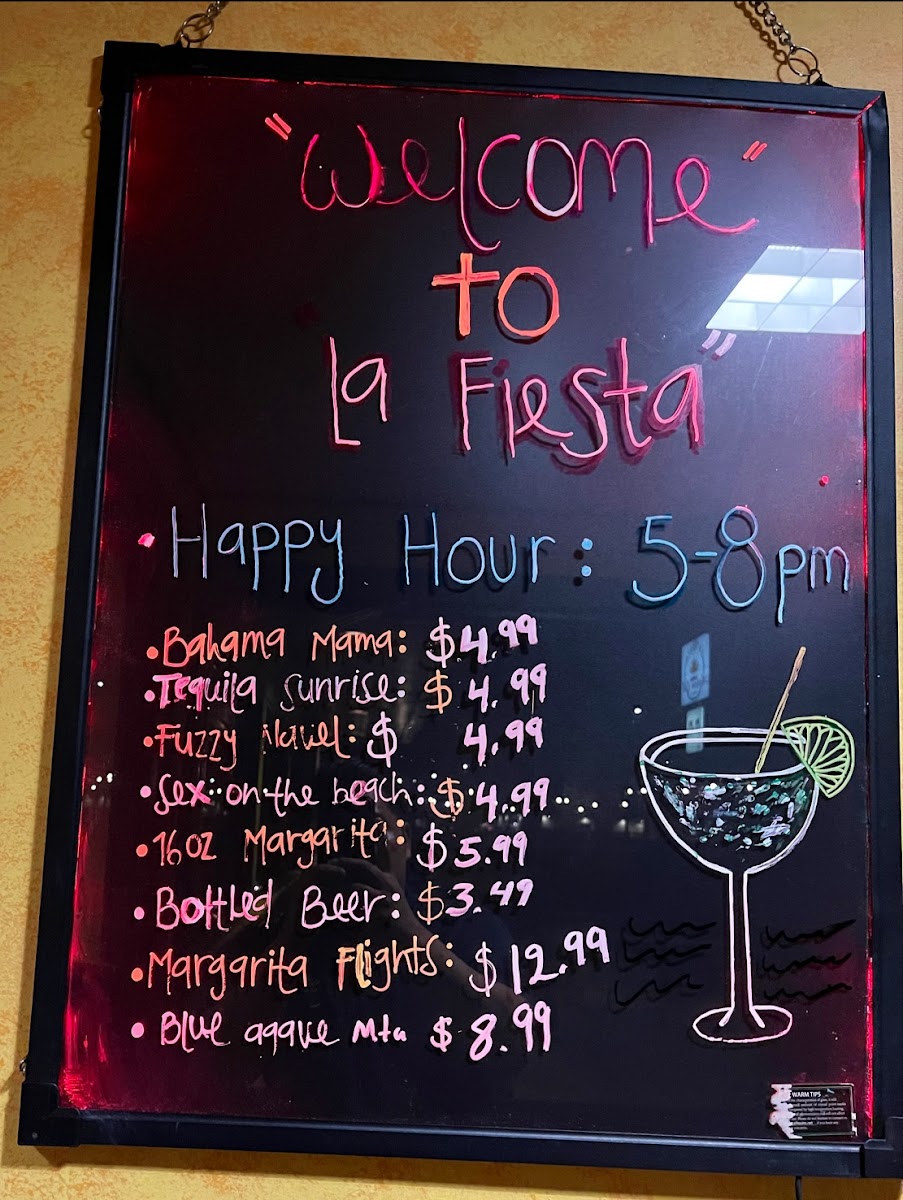 "Welcome"
to
La Fiesta"
• Happy Hour: 5-8pm
• Bahama Mama: $4.99
• Tequila Sunrise: $4.99
• Fuzzy Navel: $ 4.99
• Sex on the beach: $4.99
• 16oz Margarita: $5.99
• Bottled Beer: $3.49
• Margarita Flights: $12.99
• Blue agave Mta $8.99
WARM TIPS